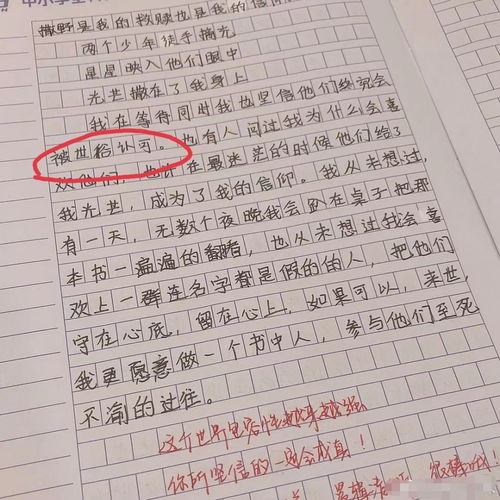 中小学生
撒野是我的救赎也是我的信仰
两个少年徒手摘光
星星映入他们眼中
光芒撒在了我身上
我在等待同时我也坚信他们终究会
被世俗认可。也有人问过我为什么会喜
欢他们，也许在最迷茫的时候他们给了
我光芒，成为了我的信仰。我从未想过，
有一天，无数个夜晚我会趴在桌子把那
本书一遍遍的翻看，也从未想过我会喜
欢上一群连名字都是假的的人，把他们
守在心底，留在心上，如果可以，来世，
我更愿意做一个书中人，参与他们至死
不渝的过往。
这个世界包容性越来越强
你所坚信的一定会成真！